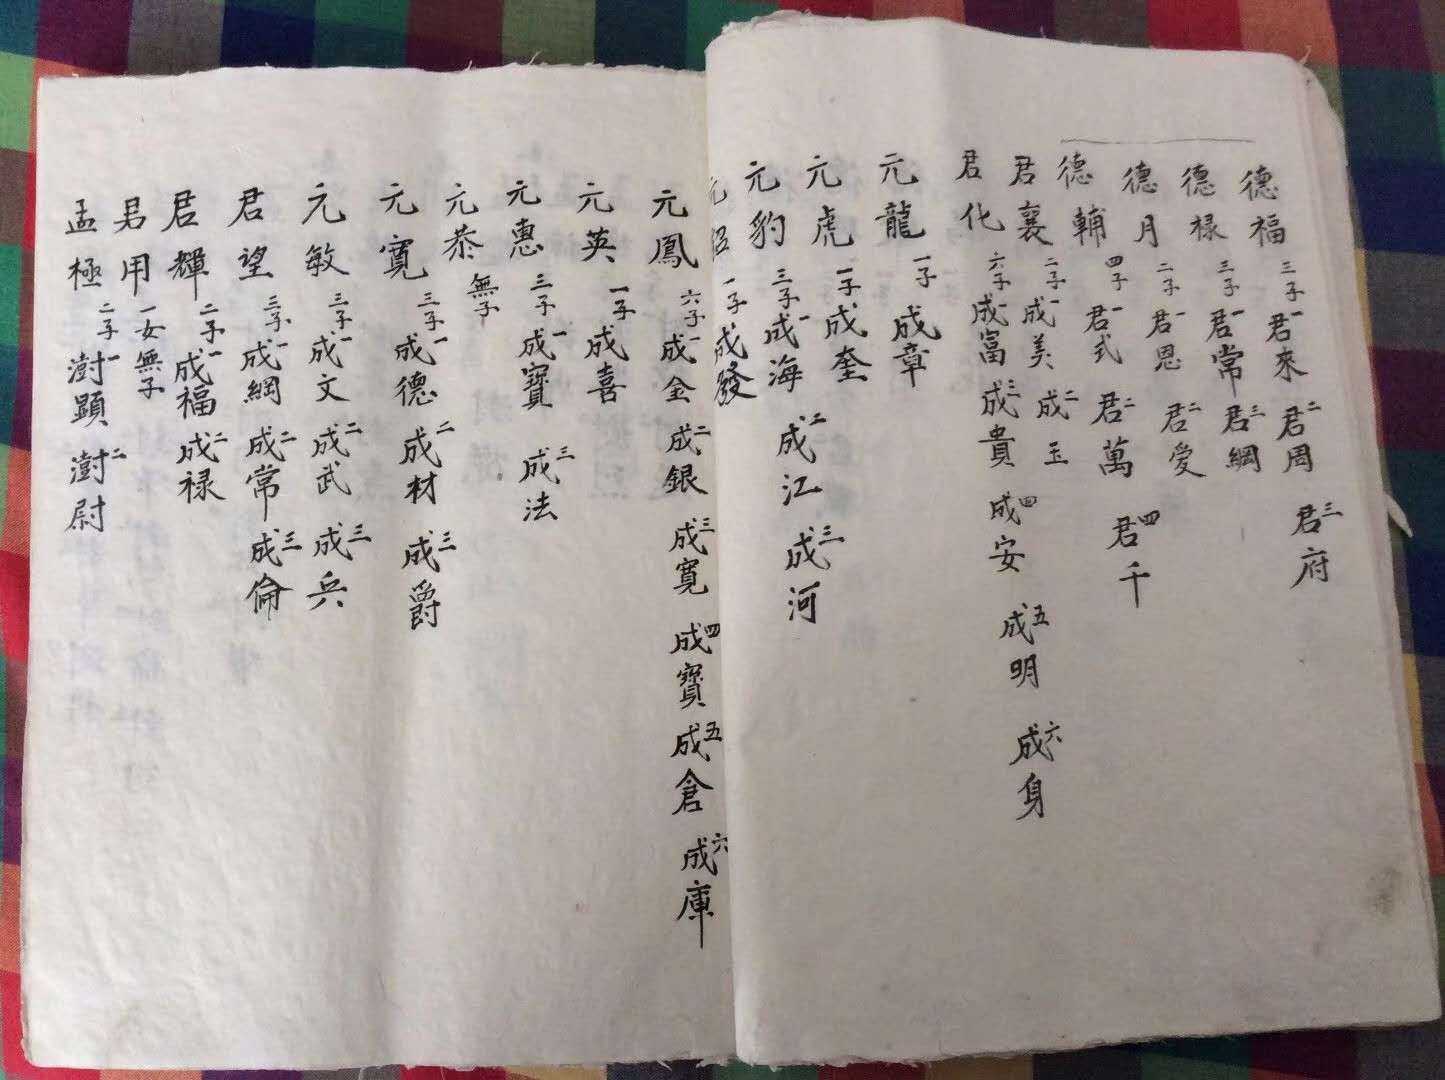 德福 三子 一君來 二君周 三君府
德禄 三子 一君常 三君綱
德月 二子 一君恩 二君愛
德輔 四子 一君式 二君萬 四君千
君襄 二子 一成美 二成玉
君化 六子 一成富 三成貴 四成安 五成明 六成身
元龍 一子 成章
元虎 一子 成奎
元豹 三子 一成海 二成江 三成河
元 一子 成發
元鳳 六子 一成金 二成銀 三成寬 四成寳 五成倉 六成庫
元英 一子 成喜
元惠 三子 一成寳 三成法
元恭 無子
元寬 三子 一成德 二成材 三成爵
元敏 三子 一成文 二成武 三成兵
君望 三子 一成綱 二成常 三成倫
君輝 二子 一成福 二成禄
男用 一女無子
孟極 二子 一澍顕 二澍尉